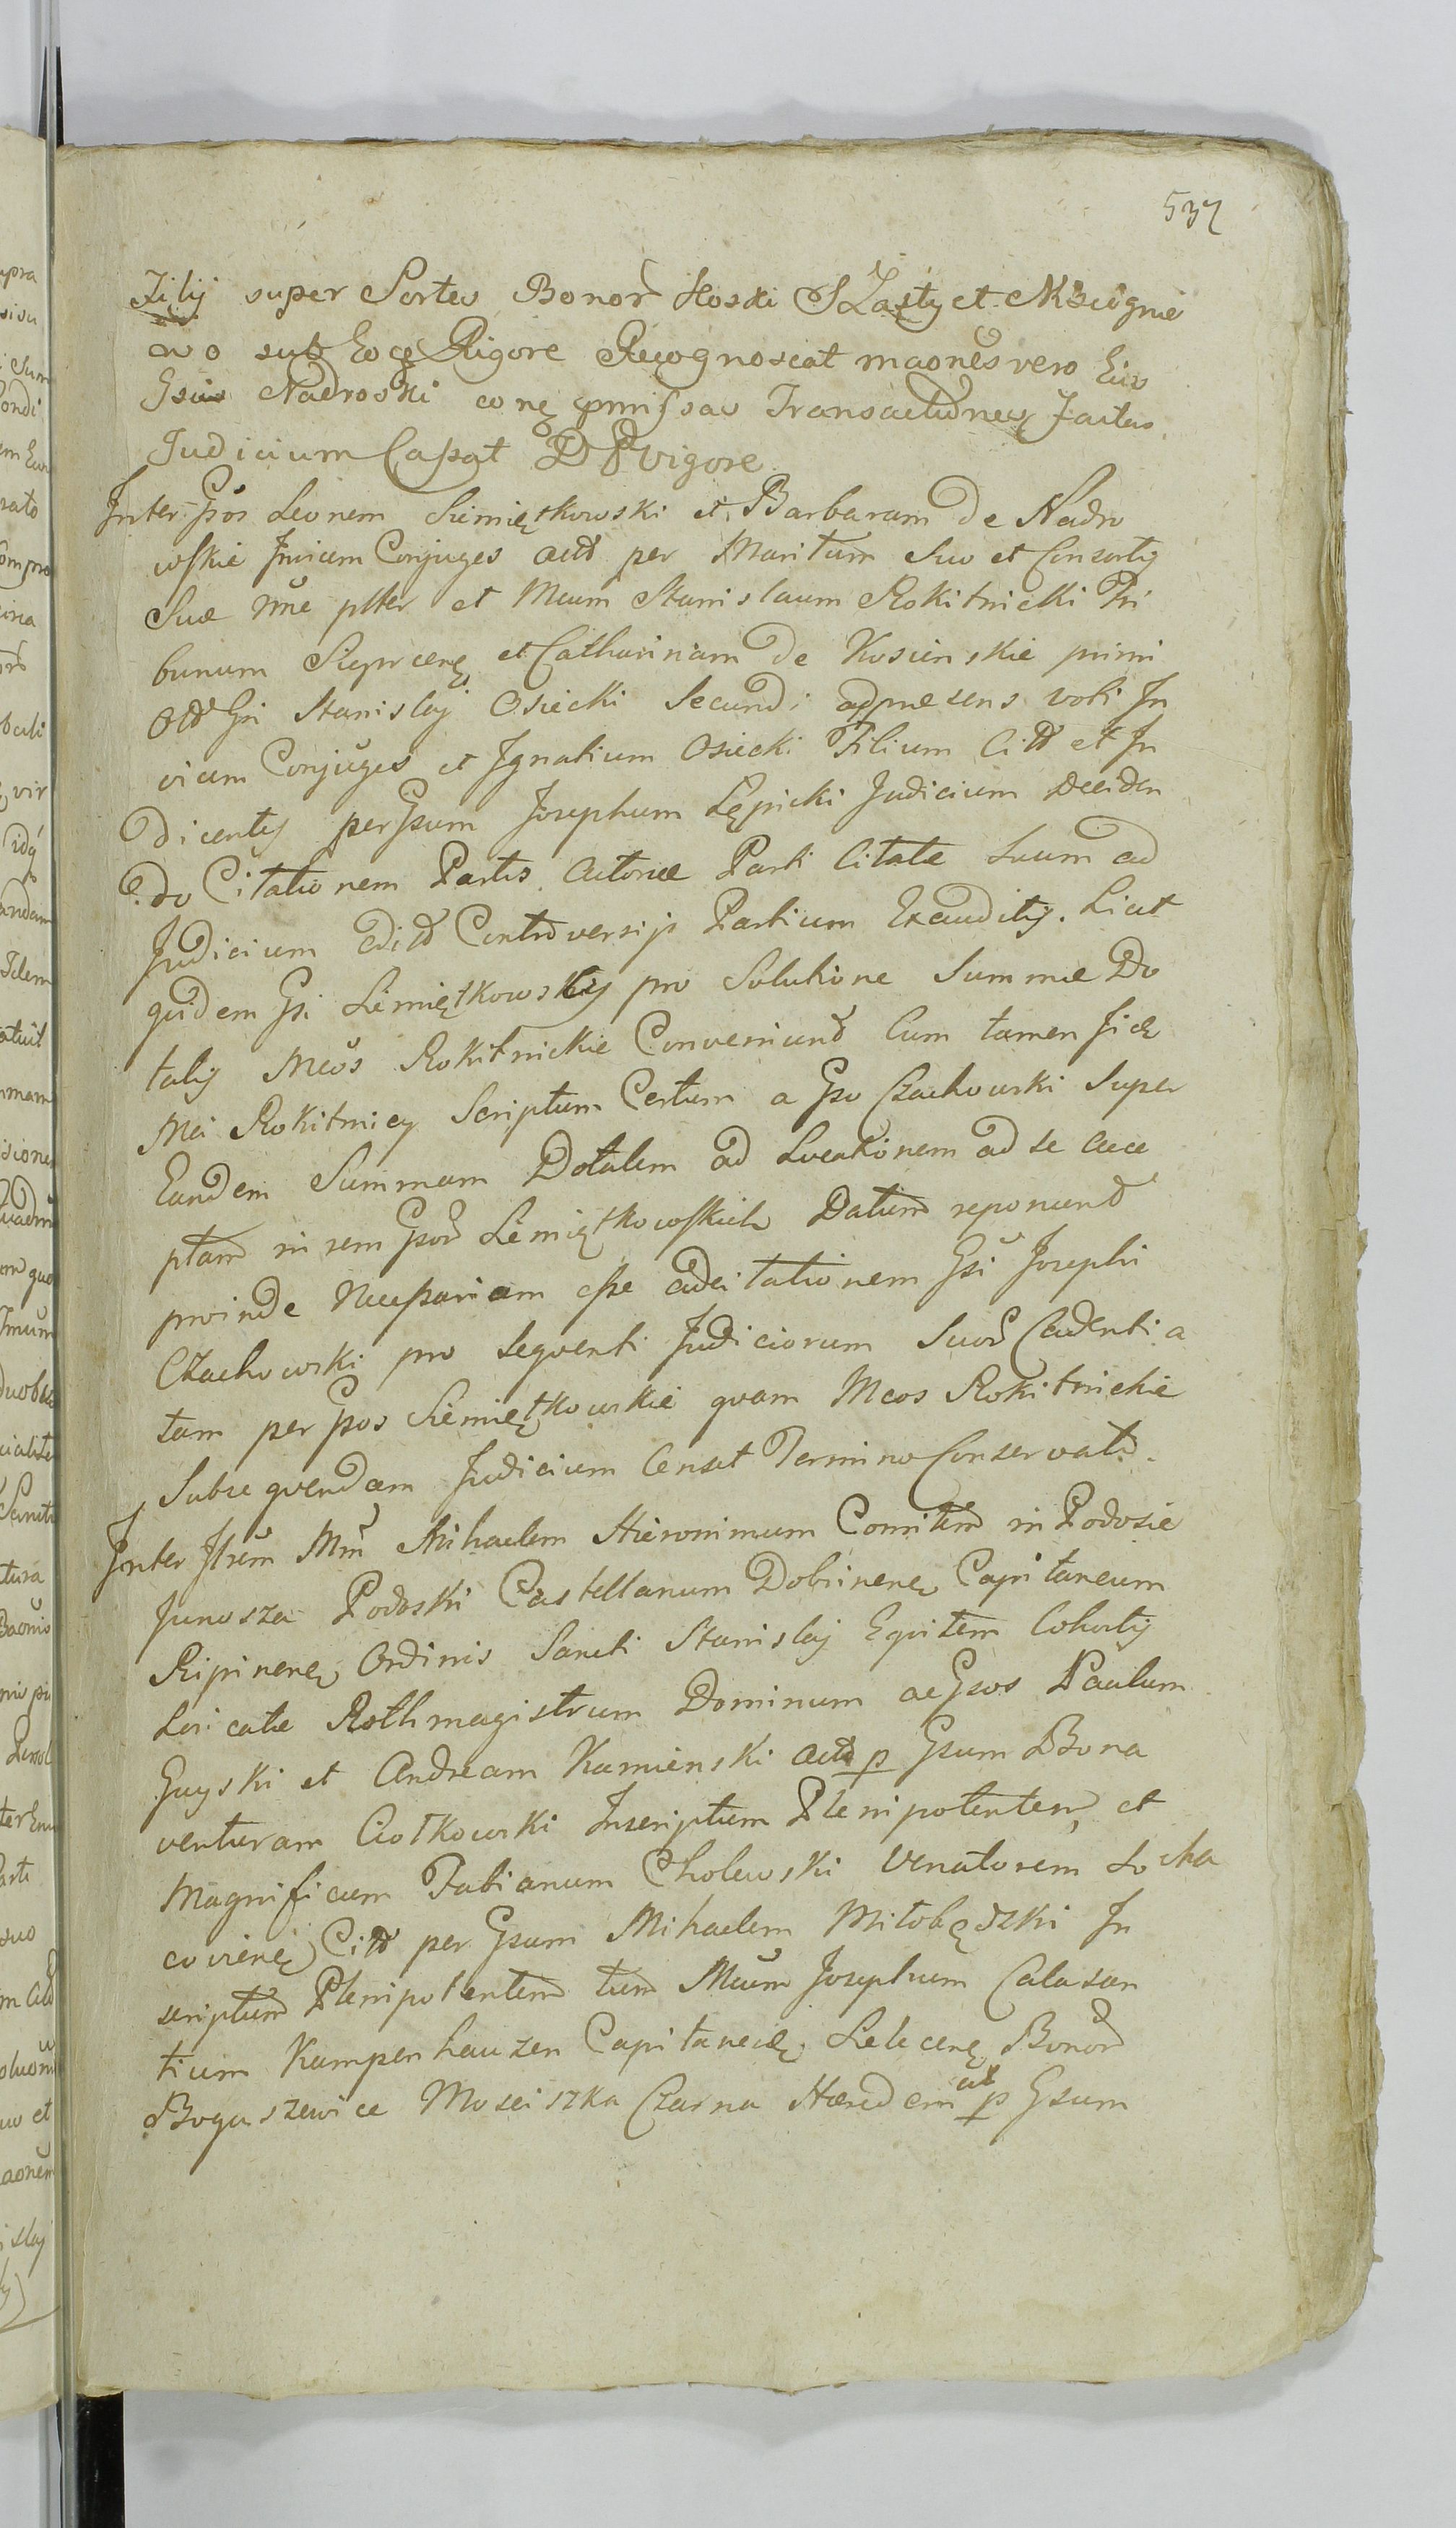 537
Filij super Sortes Bonor Koski SZasty et Mscignie
wo sub Eoqe Rigore Recognoscat maones vero Eius
Gsius Nadroski cone pmissas Transactiones factas
Judicium Cassat D P vigore
Inter Gsos Leonem Siemiętkowski et Barbaram de Nadro
wskie Invicem Conjuges actt per Maritum Suo et Consortis
Sue nne ptter et Mcum Stanislaum Rokitnicki Tri
bunum Sieprcenę et Catharinam de Kosinskie primi
Old Gsi Stanislaj Osiecki Secundi adpraesens voti In
vicem Conjuges et Ignatium Osiecki Filium Citt et In
dicentis per Gsum Josephum Lępicki Judicium Deciden
do Citationem Partis Actoriae Parti Citatae Suum ad
Judicium edit Controversijs Partium Exauditis. Licet
quidem Gsi Siemiętkowskij pro Solutione Summae Do
talis Mcos Rokitnickie Conveniunt Cum tamen
Mci Rokitnicy Scriptum Certum a Gso Czachowski Super
Eandem Summam Dotalem ad Lucationem ad se acce
ptam in rem Gsor Siemiętkowskich Datum reponunt
proinde Necessariam esse adcitationem Gsi Josephi
Czachowski pro sequenti Judiciorum Suor Cadentia
tam per Gsos Siemiętkowskie quam Mcos Rokitnickie
Subsequendam Judicium Censet Termino Conservato.
Inter Illrem Mm Mihaelem Hieronimum Comitem in Podosie
Junosza Podoski Castellanum Dobrinenę Capitaneum
Ripinenę Ordinis Sancti Stanislaj Equitem Cohortis
Loricatae Rothmagistrum Dominum ac Gsos Paulum
Guyski et Andream Kamienski actt p Gsum Bona
venturam Ciotkowski Inscriptum Plenipotentem, et
Magnificum Fabianum Cholewski Venatorem Socha
covienę Citt per Gsum Mihaelem Mitobędzki In
scriptum Plenipotentem tum Mcum Josephum Calasan
tium Kampenhauzen Capitaneidę Selecenę Bonor
Boguszewice Mosciszka Czarna Haeredem act p Gsum